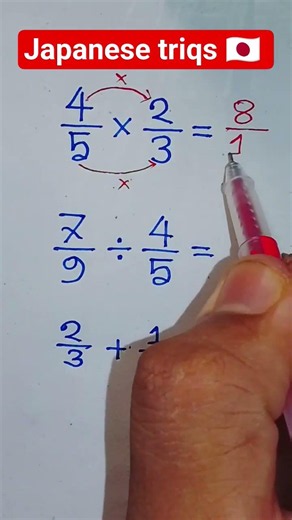 Japanese triqs 🇯🇵
x
4/5 × 2/3 = 8/1
x
7/9 ÷ 4/5 =
2/3 + 1